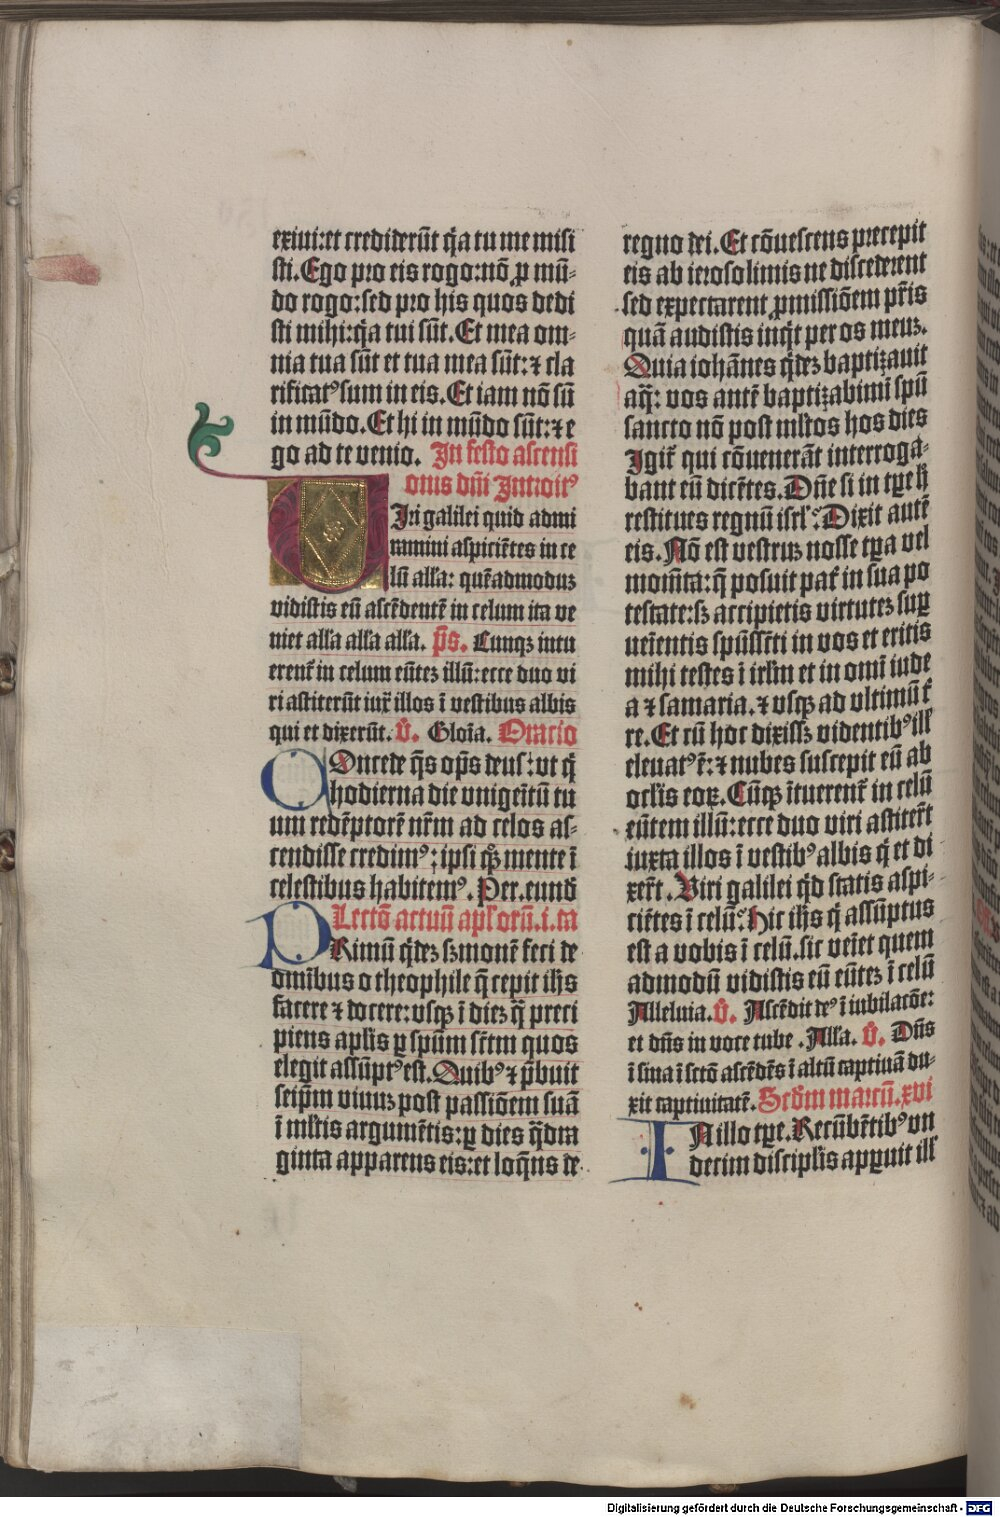 exiui: et crediderūt q̄a tu me misi
sti. Ego pro eis rogo: nō ꝓ mū-
do rogo: sed pro his quos dedi
sti mihi: q̄a tui sūt. Et mea om-
nia tua sūt et tua mea sūt: ⁊ cla
rificatꝰ sum in eis. Et iam nō sū
in mūdo. Et hi in mūdo sūt: ⁊ e
go ad te venio. In festo ascensi
onis dn̄i Introitꝰ
Uiri galilei quid admi
ramini aspiciētes in ce
lū alľa: quēadmoduz
vidistis eū ascēdentē in celum ita ve
niet alľa alľa alľa. p̄s. Cunqꝫ intu
erent᷑ in celum eūtez illū: ecce duo vi
ri astiterūt iux̄ illos ī vestibus albis
qui et dixerūt. v̄. Gloīa. Oracio
COncede q̄s op̄s deus: vt q̄
hodierna die vnigeītū tu
um redēptorē nr̄m ad celos as-
cendisse credimꝰ: ipsi qꝫ mente ī
celestibus habitemꝰ. Per. eund̄
Lectō actuū apľorū. i. ca
PRimū q̄dez ẜmonē feci de
omībus o theophile q̄ cepit ih̄s
facere ⁊ docere: vsqꝫ ī diez q̄ preci
piens apľis ꝑ spūm sc̄tm quos
elegit assūptꝰ est. Quibꝰ ⁊ p̄buit
seip̄m viuuz post passiōem suā
ī mľtis argumētis: ꝑ dies q̄dra
ginta apparens eis: et loq̄ns de
regno dei. Et cōuescens precepit
eis ab ierosolimis ne discederent
sed expectarent ꝓmissiōem pr̄is
quā audistis inq̄t per os meuz.
Quia iohānes q̄dez baptizauit
aq̄: vos autē baptizabimī spū
sancto nō post mľtos hos dies
Igit᷑ qui cōuenerāt interroga-
bant eū dicētes. Dn̄e si in tꝑe h̄
restitues regnū isrľ? Dixit autē
eis. Nō est vestruz nosse tꝑa vel
momēta: q̄ posuit pat᷑ in sua po
testate: sꝫ accipietis virtutez suꝑ
ueīentis spūssc̄ti in vos et eritis
mihi testes ī irľm et in omī iude
a ⁊ samaria. ⁊ vsqꝫ ad vltimū t᷑
re. Et cū hoc dixissꝫ videntibꝰ ilľ
eleuatꝰ ē: ⁊ nubes suscepit eū ab
ocľis eoꝝ. Cūqꝫ ītuerent᷑ in celū
eūtem illū: ecce duo viri astiter̄t
iuxta illos ī vestibꝰ albis q̄ et di
xer̄t. Viri galilei q̄d statis aspi-
ciētes ī celū? hic ih̄s q̄ assūptus
est a vobis ī celū. sic veīet quem
admodū vidistis eū eūtez ī celū
Alleluia. v̄. Ascēdit deꝰ ī iubilacōe:
et dn̄s in voce tube. Alľa. v̄. Dn̄s
ī sina ī sctō ascēdēs ī altū captiuā du-
xit captiuitatē. Scd̄m marcū. xvi
IN illo tꝑe. Recūbētibꝰ vn
decim discipľis apꝑuit ilľ
Digitalisierung gefördert durch die Deutsche Forschungsgemeinschaft - DFG